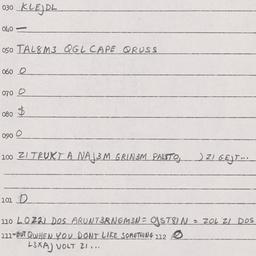 030 KLEJDL
040 —
050 TAL8M3 QGL CAPE QRUSS
060 0
070 0
080 $
090 0
100 ZI TRUKT A NAJ3M GRIN3M PALSTO, ) ZI GEJT...
101 D
110 LOZZI DOS ARUNT3RNGM3N= = ZOL ZI DOS
111-BUT QUHEN YOU DONT LIKE SOMETHING 112 0
L3XAJ VOLT ZI...